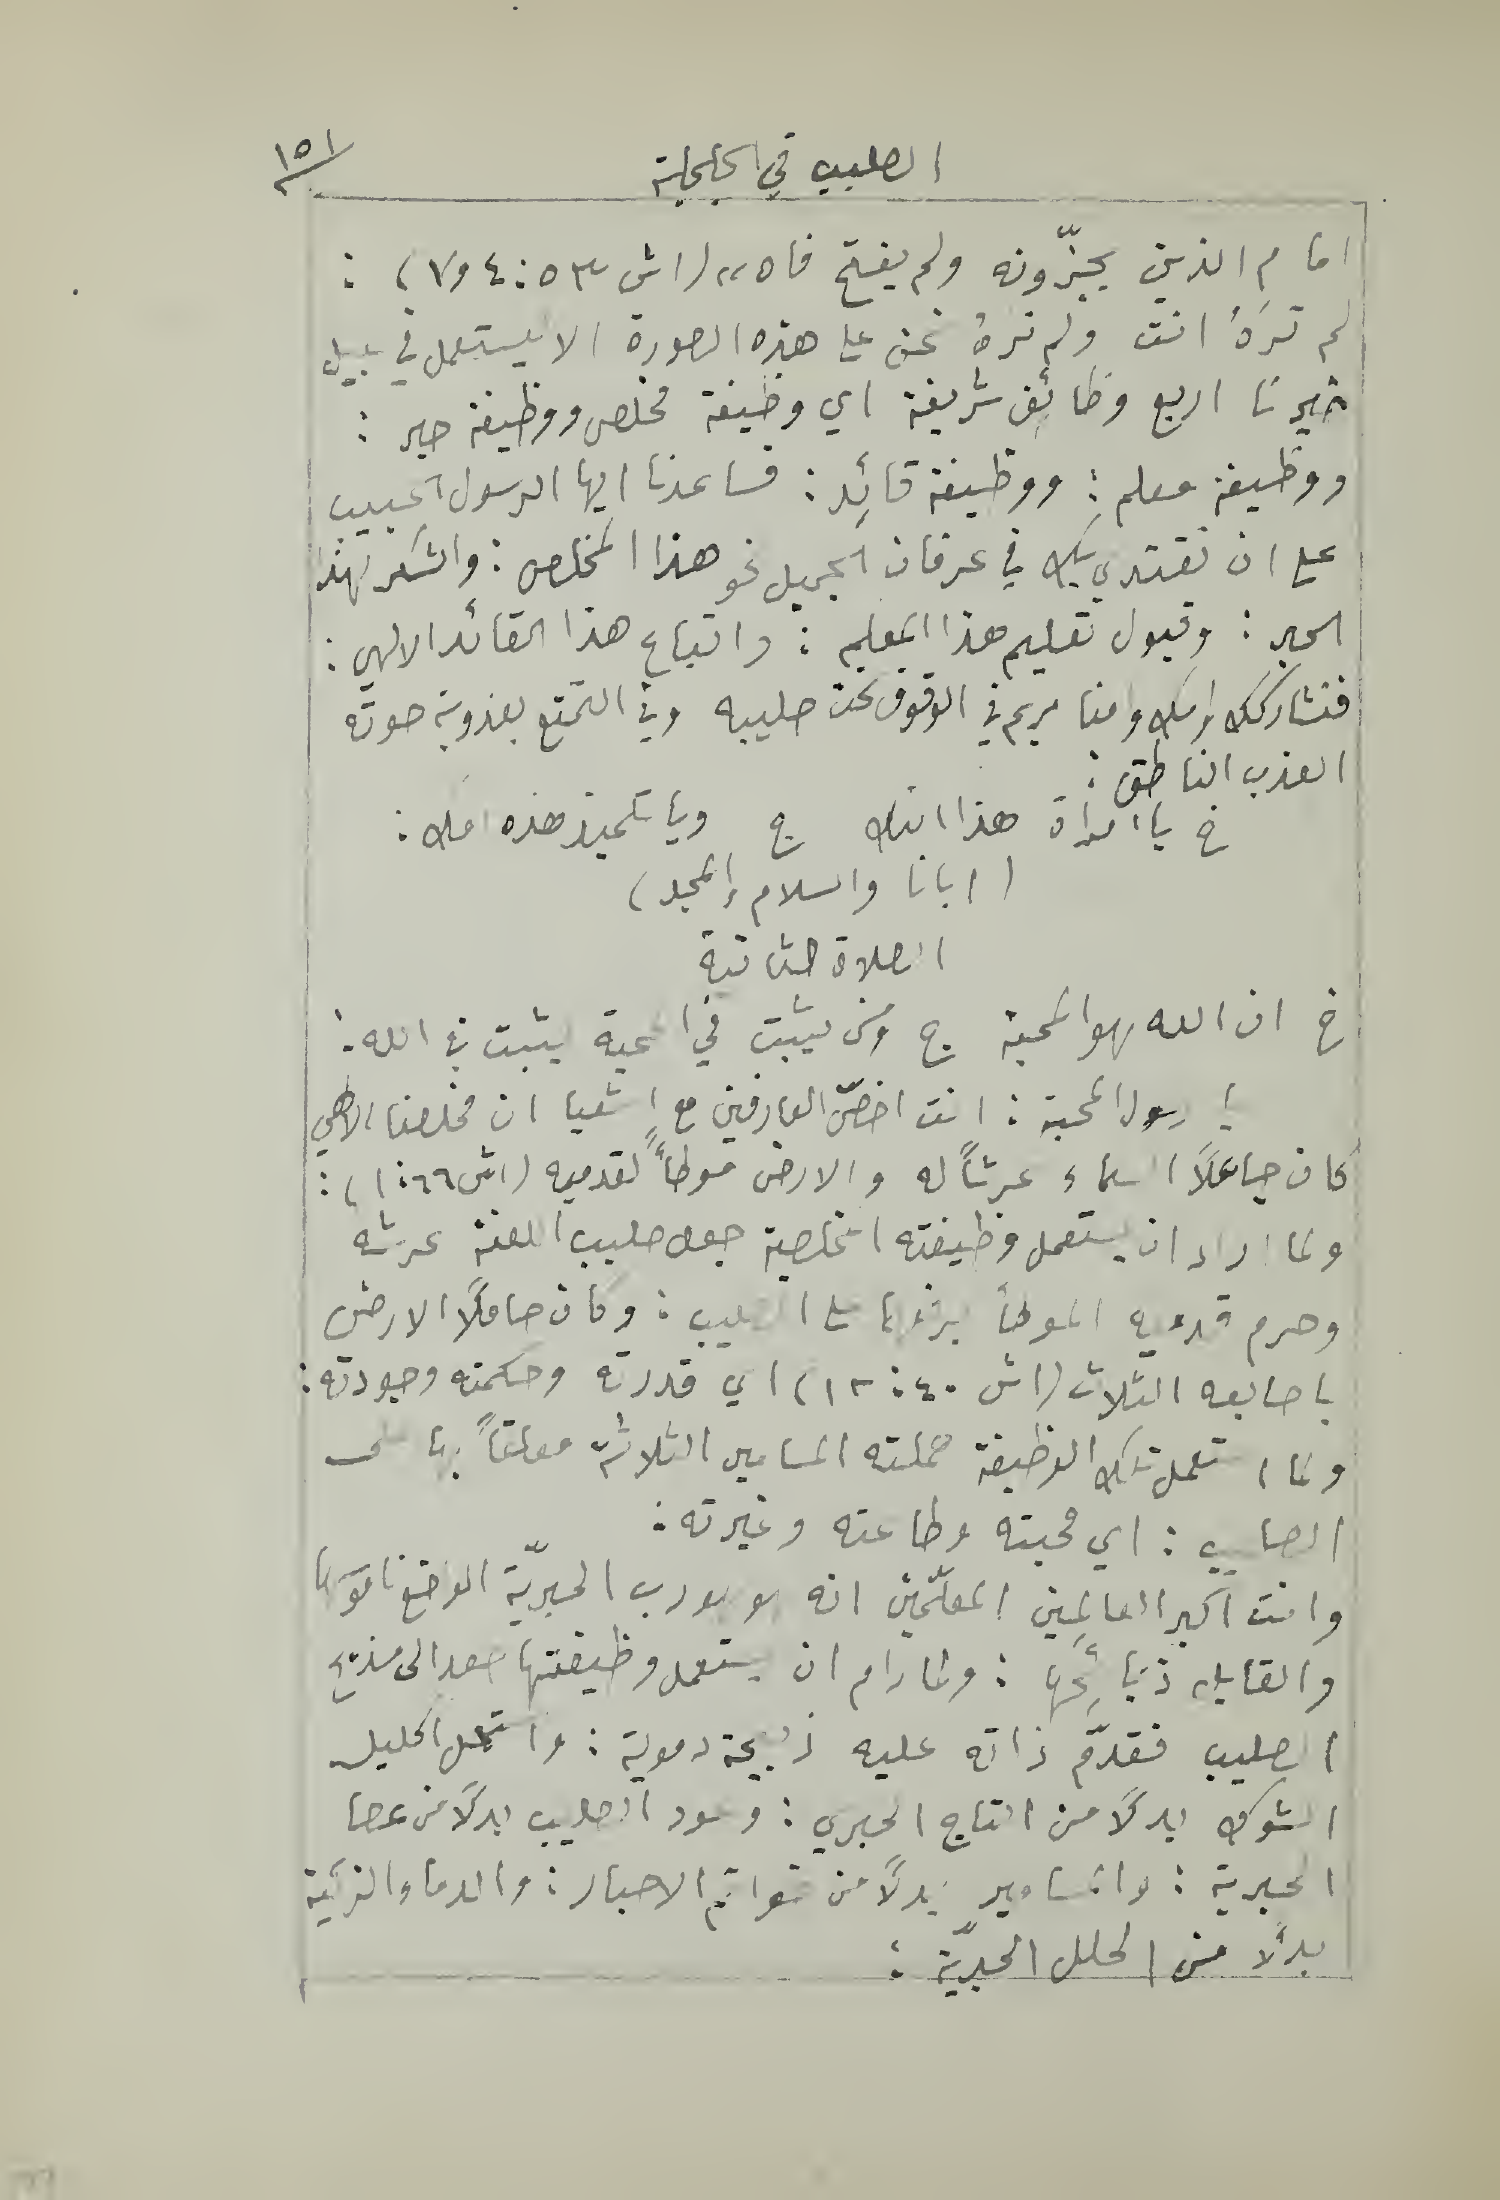 الصليب في الجلجلة
١٥١
امام الذين يجزّونه ولم يفتح فاه،، (اش ٥٣ : ٤ و٧) :
لم ترَهُ انت ولم نرهُ نحن على هذه الصورة الا ليستعمل في سبيل
خيرنا اربع وظائف شريفة اي وظيفة مخلص ووظيفة حبر :
ووظيفة معلم : ووظيفة قائِد : فساعدنا ايها الرسول الحبيب
على ان نقتدي بك في عرفان الجميل نحو هذا المخلص : والشكر لهذا
الحبر : وقبول تعليم هذا المعلم : واتباع هذا القائد الالهي :
فنشاركك وامك وامنا مريم في الوقوف تحت صليبه وفي التمتع بعذوبة صوته
العذب الناطق :
خ يا امرأة هذا ابنك ج ويا تلميذ هذه امك :
(ابانا والسلام والمجد)
الصلاة الثانية
خ ان الله هو المحبة ج ومن يثبت في المحبة يثبت في الله :
يا رسول المحبة : انت اخصّ العارفين مع اشعيا ان مخلصنا الالهي
كان جاعلاً السماء عرشاً له والارض موطأً لقدميه (اش ٦٦ : ١) :
ولما اراد ان يستعمل وظيفته المخلصية جعل صليب اللعنة عرشه
وحرم قدميه الموطأ برفعهما على الصليب : وكان حاملاً الارض
باصابعه الثلاث (اش ٤٠ : ١٢) اي قدرته وحكمته وجودته :
ولما استعمل تلك الوظيفة حملته المسامير الثلاثة معلقاً بها على
الصليب : اي محبته وطاعته وغيرته :
وانت اكبر العالِمين المعلّمين انه هو رب الحبريّة الواضع ناموسها
والقابل ذبائِحها : ولما رام ان يستعمل وظيفتها صعد الى مذبح
الصليب فقدّم ذاته عليه ذبيحة دموية : واستعمل اكليل
الشوك بدلاً من التاج الحبري : وعود الصليب بدلاً من عصا
الحبرية : والمسامير بدلاً من خواتم الاحبار : والدماء الزكية
بدلاً من الحلل الحبريّة :